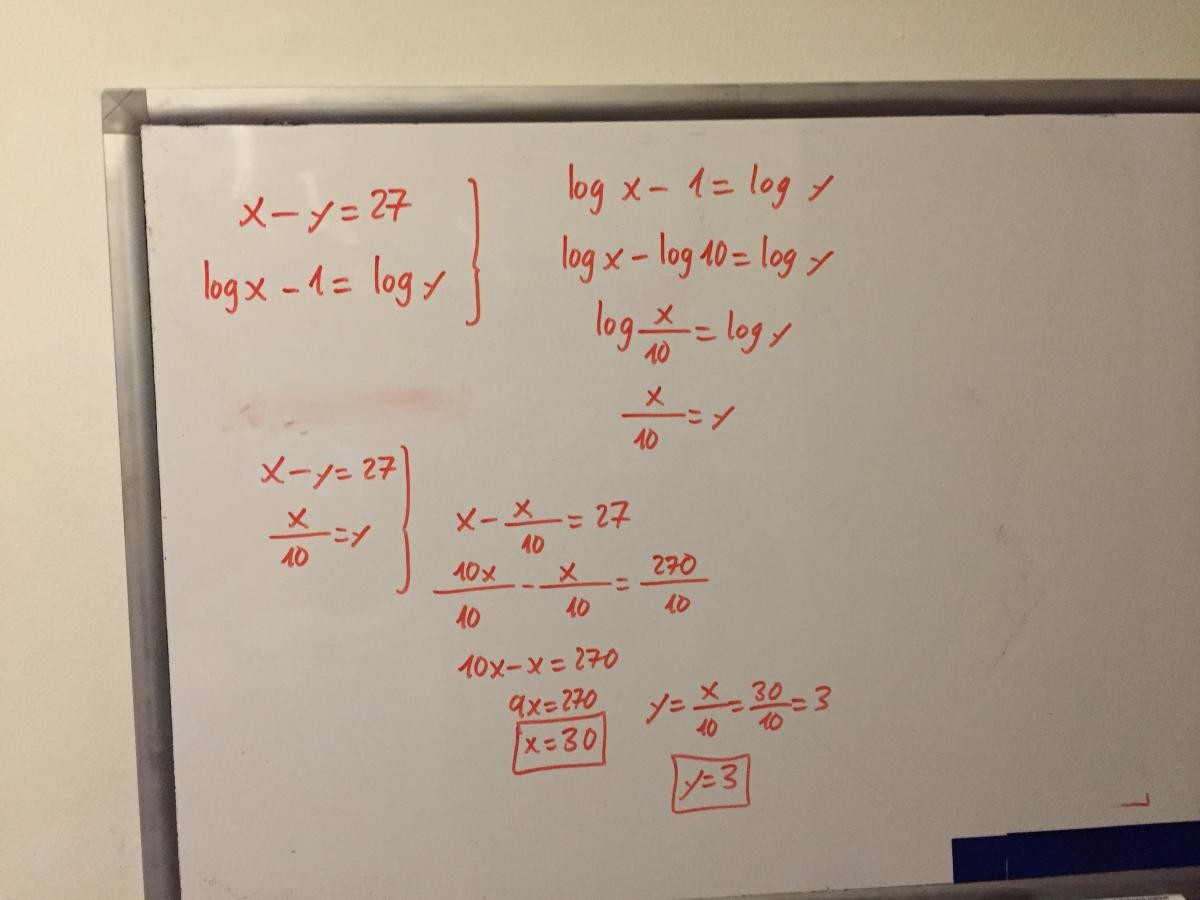 x - y = 27
log x - 1 = log y
log x - 1 = log y
log x - log 10 = log y
log x/10 = log y
x/10 = y
x - y = 27
x/10 = y
x - x/10 = 27
10x/10 - x/10 = 270/10
10x - x = 270
9x = 270
x = 30
y = x/10 = 30/10 = 3
y = 3